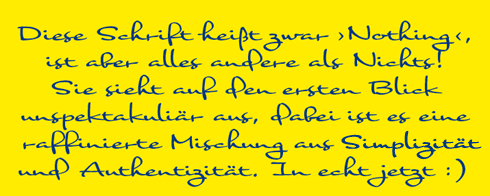 Diese Schrift heißt zwar ›Nothing‹,
ist aber alles andere als Nichts!
Sie sieht auf den ersten Blick
unspektakuliär aus, dabei ist es eine
raffinierte Mischung aus Simplizität
und Authentizität. In echt jetzt :)